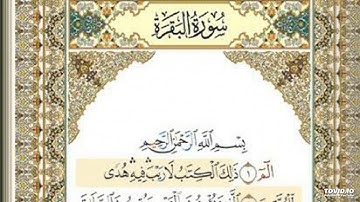 سُورَةُ الْبَقَرَةِ
بِسْمِ اللَّهِ الرَّحْمَٰنِ الرَّحِيمِ
الٓمٓ ١ ذَٰلِكَ الْكِتَابُ لَا رَيْبَ ۛ فِيهِ ۛ هُدًى
TOVID.IO